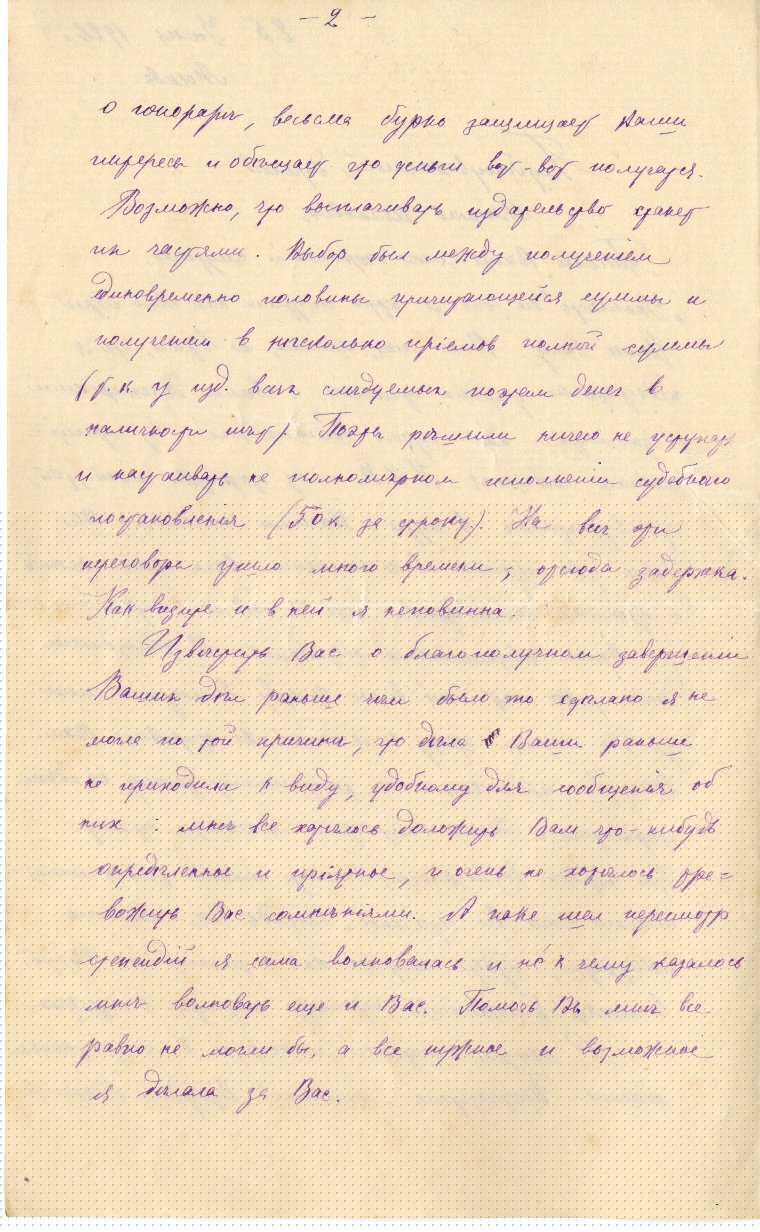 – 2 –
о гонорарѣ, весьма бурно защищает Ваши
интересы и обѣщает что деньги вот-вот получатся.
Возможно, что выплачивать издательство станет
их частями. Выбор был между полученіем
единовременно половины причитающейся суммы и
полученіем в нѣсколько пріемов полной суммы
(т.к у изд. всѣх слѣдуемых поэтам денег в
наличности нѣт). Поэты рѣшили ничего не уступать
и настаивать на полномѣрном исполненіи судебнаго
постановленія (50 к. за строку). На всѣ эти
переговоры ушло много времени, отсюда задержка.
Как видите и в ней я неповинна.
Извѣстить Вас о благополучном завершеніи
Ваших дѣл раньше чѣм было это сдѣлано я не
могла по той причинѣ, что дѣла Ваши раньше
не приходили к виду, удобному для сообщенія об
них: мнѣ все хотѣлось доложить Вам что-нибудь
опредѣленное и пріятное, и очень не хотѣлось тре=
вожить Вас сомнѣніями. А пока шел пересмотр
стипендій я сама волновалась и не́ к чему казалось
мнѣ волновать еще и Вас. Помочь Вы мнѣ все
равно не могли бы, а все нужное и возможное
я дѣлала за Вас.